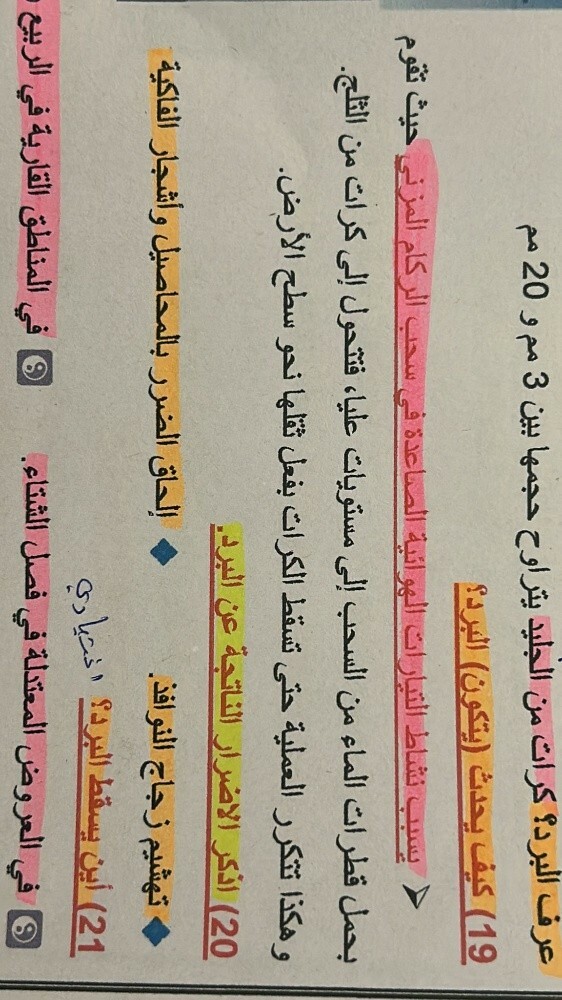 عرف البرد؟ كرات من الجليد يتراوح حجمها بين 3 مم و 20 مم
19) كيف يحدث (يتكون) البرد؟
بسبب نشاط التيارات الهوائية الصاعدة في سحب الركام المزني حيث تقوم
بحمل قطرات الماء من السحب إلى مستويات عليا، فتتحول إلى كرات من الثلج.
وهكذا تتكرر العملية حتى تسقط الكرات بفعل ثقلها نحو سطح الأرض.
20) اذكر الاضرار الناتجة عن البرد.
تهشيم زجاج النوافذ. إلحاق الضرر بالمحاصيل وأشجار الفاكهة
21) أين يسقط البرد؟ اختياري
في العروض المعتدلة في فصل الشتاء. في المناطق القارية في الربيع